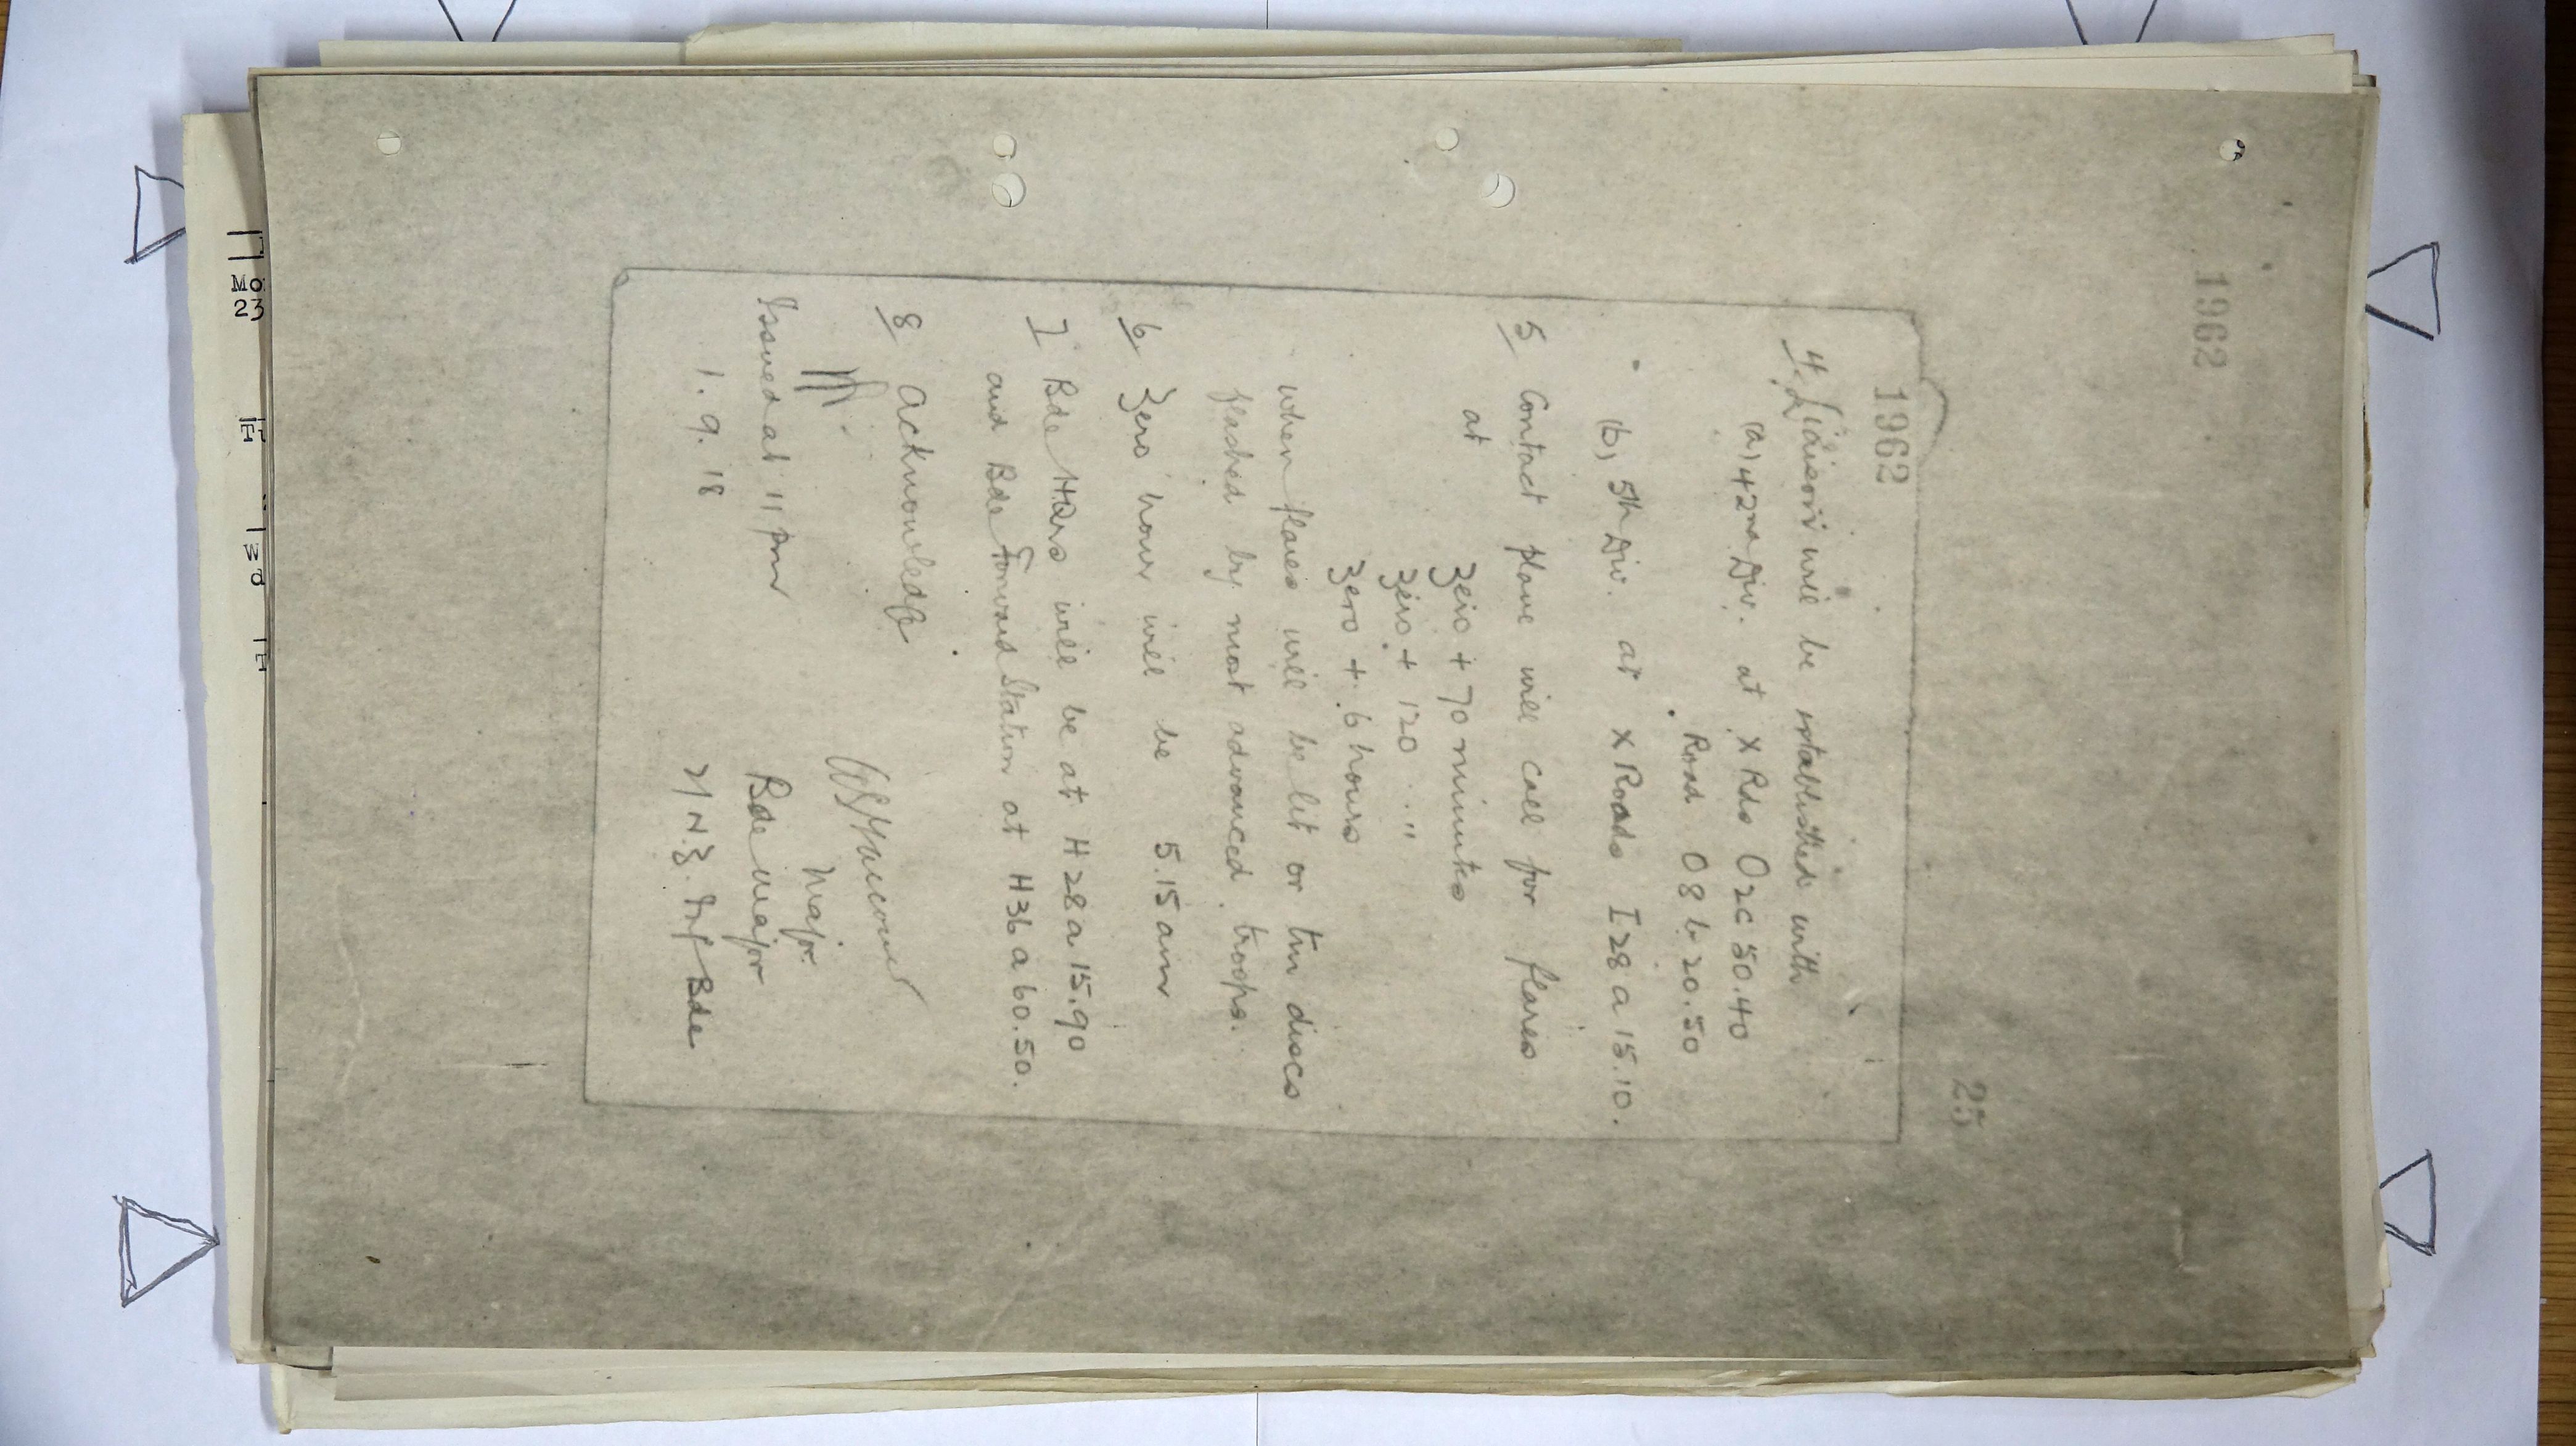 1962
25
1962
4/ Liaison will be established with
(a) 42nd Div. at X Rds O2c 50.40
Road O8b 20.50
(b) 5th Div. at X Roads I28a 15.10.
5/ Contact plane will call for flares
at
Zero + 70 minutes
Zero + 120 "
Zero + 6 hours
when flares will be lit or tin discs
flashed by most advanced troops.
6/ Zero hour will be 5.15 am
7/ Bde HQrs will be at H28a 15.90
and Bde Forward Station at H36a 60.50.
8/ Acknowledge
Major.
Issued at 11 pm
Bde Major
1.9.18
2/ N.Z. Inf Bde
Mo
23